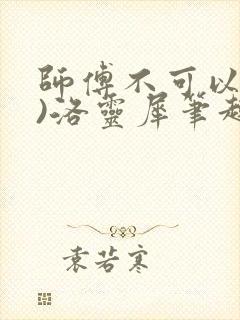 師傅不可以
)洛靈犀筆趣
袁若寒